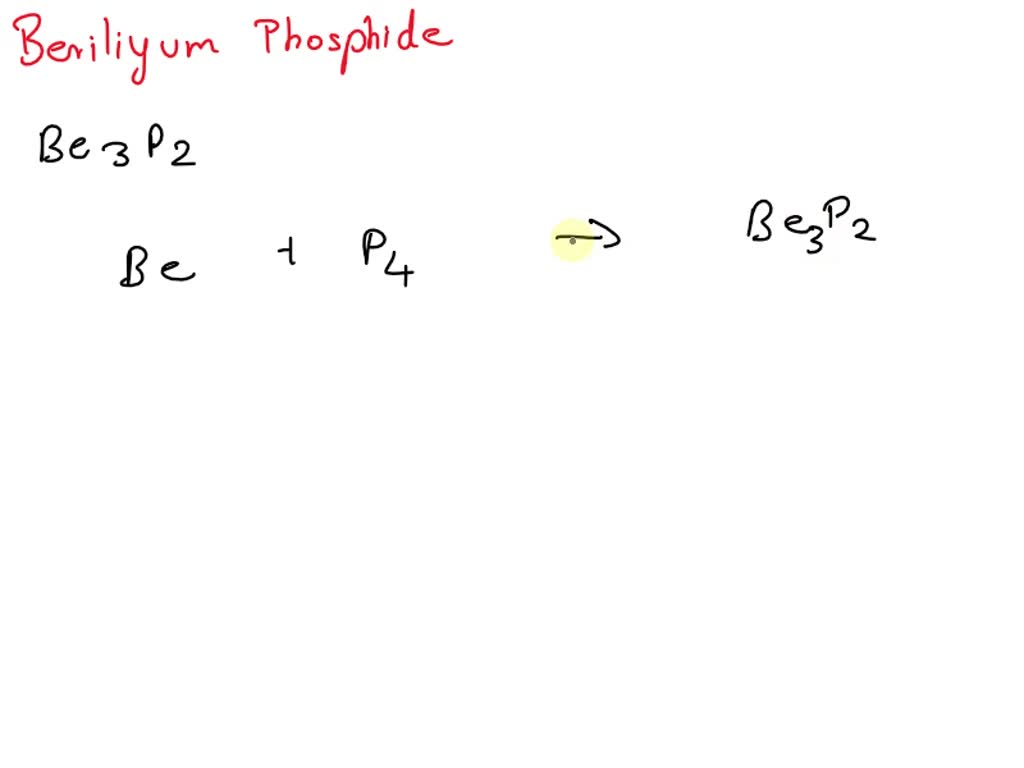 Beriliyum Phosphide
Be3P2
Be + P4 → Be3P2